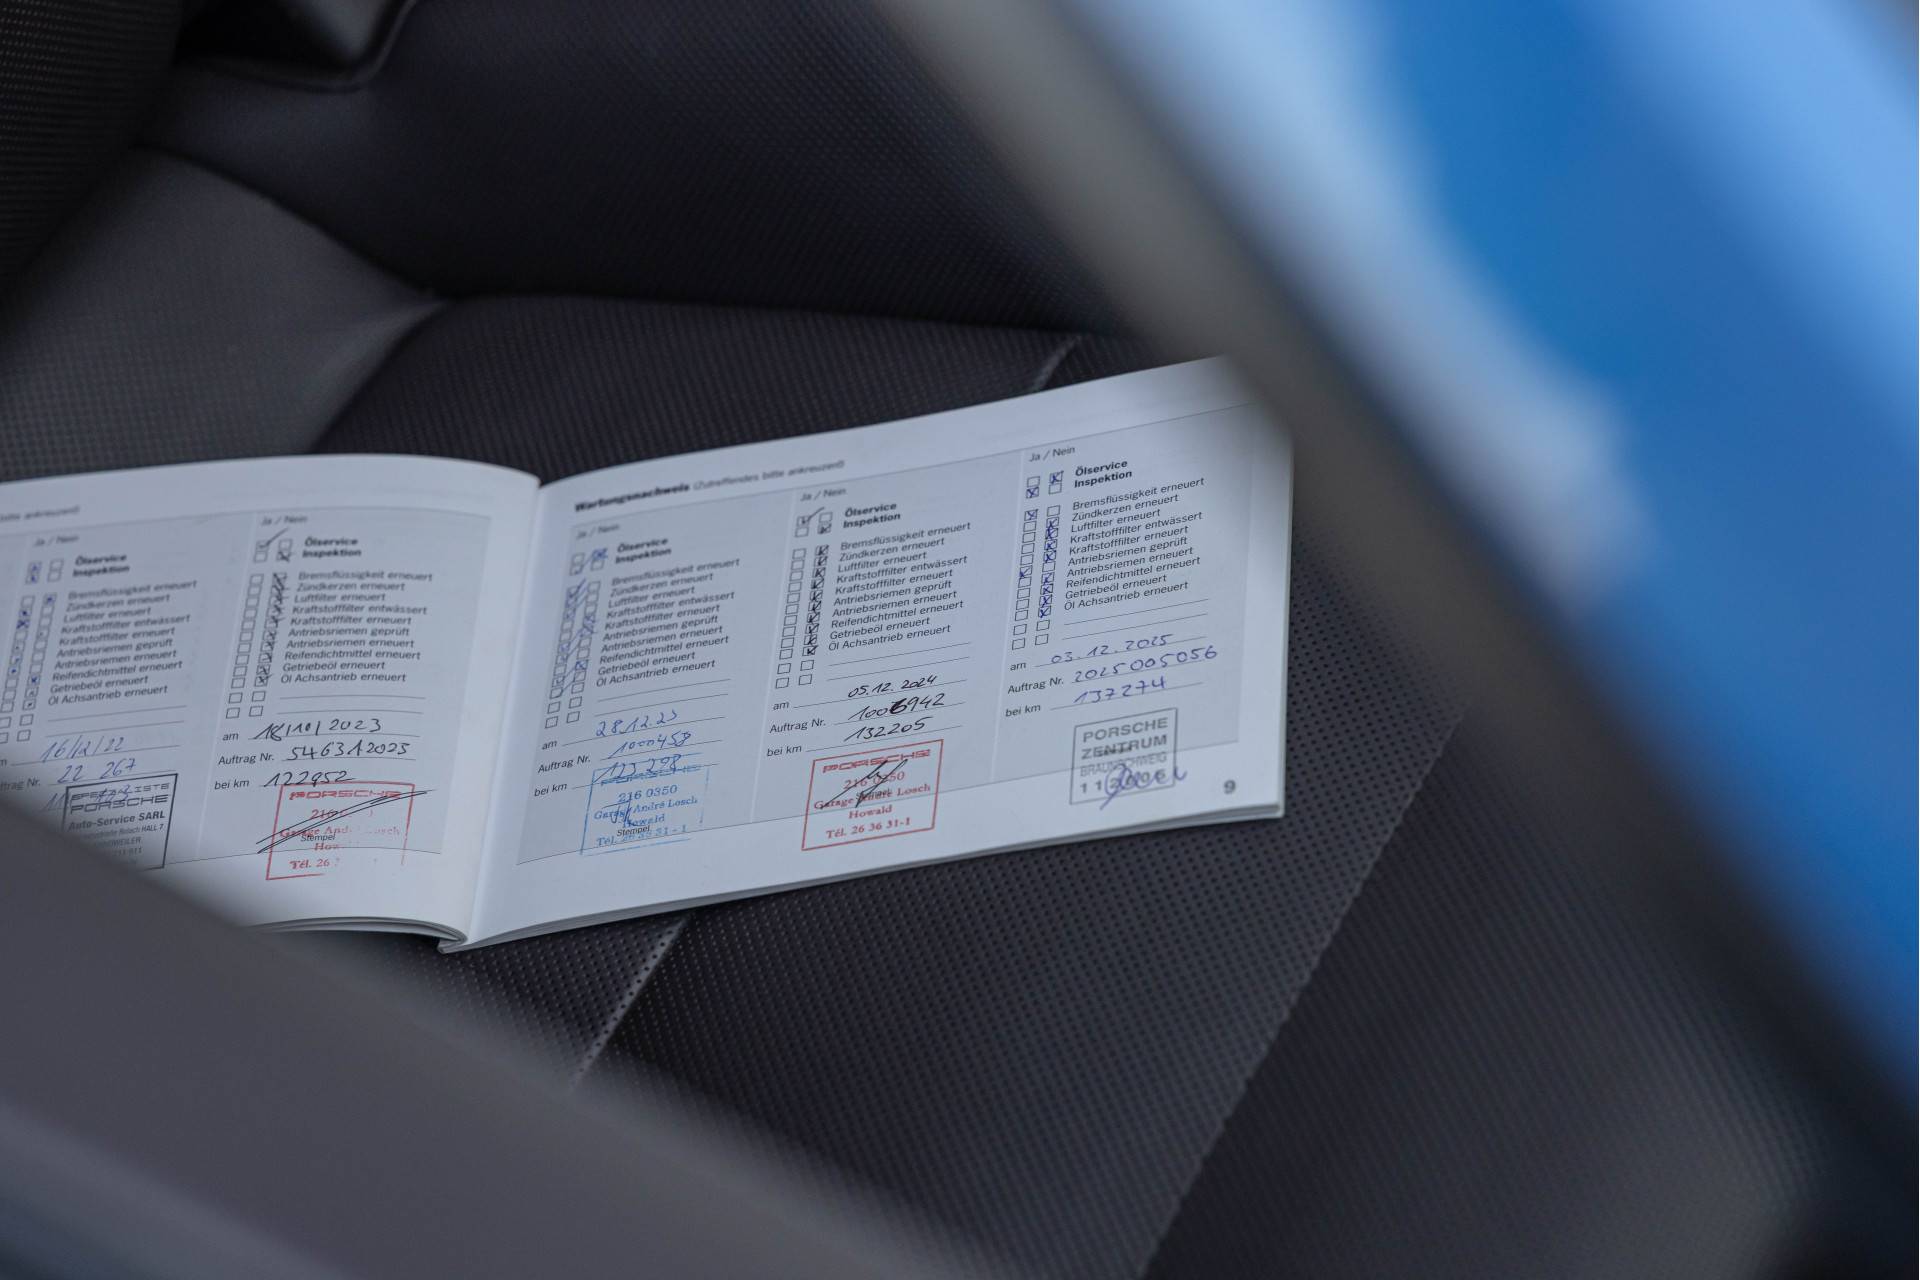 bitte ankreuzen!)
Ja / Nein
Ölservice
Inspektion
Bremsflüssigkeit erneuert
Zündkerzen erneuert
Luftfilter erneuert
Kraftstofffilter entwässert
Kraftstofffilter erneuert
Antriebsriemen geprüft
Antriebsriemen erneuert
Reifendichtmittel erneuert
Getriebeöl erneuert
Öl Achsantrieb erneuert
16/12/22
Nr. 22 267
SPECIALISTE
PORSCHE
Auto-Service SARL
HALL 7
Ja / Nein
Ölservice
Inspektion
Bremsflüssigkeit erneuert
Zündkerzen erneuert
Luftfilter erneuert
Kraftstofffilter entwässert
Kraftstofffilter erneuert
Antriebsriemen geprüft
Antriebsriemen erneuert
Reifendichtmittel erneuert
Getriebeöl erneuert
Öl Achsantrieb erneuert
am 18/10/2023
Auftrag Nr. 546312023
bei km 122952
PORSCHE
Garage
Stempel
Tél. 26
Wartungsnachweis (Zutreffendes bitte ankreuzen!)
Ja / Nein
Ölservice
Inspektion
Bremsflüssigkeit erneuert
Zündkerzen erneuert
Luftfilter erneuert
Kraftstofffilter entwässert
Kraftstofffilter erneuert
Antriebsriemen geprüft
Antriebsriemen erneuert
Reifendichtmittel erneuert
Getriebeöl erneuert
Öl Achsantrieb erneuert
am 28.12.23
Auftrag Nr. 1000459
bei km 123298
PORSCHE
216 0350
Garage André Losch
Howald
Stempel
Tél. 26 36 31-1
Ja / Nein
Ölservice
Inspektion
Bremsflüssigkeit erneuert
Zündkerzen erneuert
Luftfilter erneuert
Kraftstofffilter entwässert
Kraftstofffilter erneuert
Antriebsriemen geprüft
Antriebsriemen erneuert
Reifendichtmittel erneuert
Getriebeöl erneuert
Öl Achsantrieb erneuert
am 05.12.2024
Auftrag Nr. 1006942
bei km 132205
PORSCHE
216 0350
Garage André Losch
Stempel
Howald
Tél. 26 36 31-1
Ja / Nein
Ölservice
Inspektion
Bremsflüssigkeit erneuert
Zündkerzen erneuert
Luftfilter erneuert
Kraftstofffilter entwässert
Kraftstofffilter erneuert
Antriebsriemen geprüft
Antriebsriemen erneuert
Reifendichtmittel erneuert
Getriebeöl erneuert
Öl Achsantrieb erneuert
am 03.12.2025
Auftrag Nr. 2025005056
bei km 137274
PORSCHE
ZENTRUM
BRAUNSCHWEIG
9